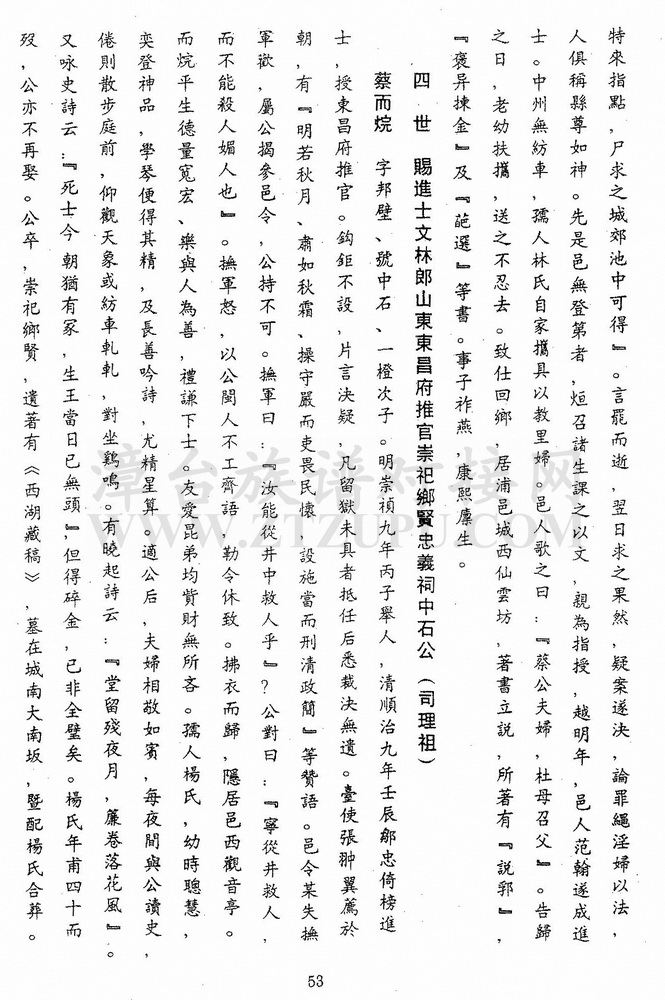 特來指點，尸求之城郊池中可得』。言罷而逝，翌日求之果然，疑案遂決，論罪繩淫婦以法，
人俱稱縣尊如神。先是邑無登第者，烜召諸生課之以文，親為指授，越明年，邑人范翰遂成進
士。中州無紡車，孺人林氏自家攜具以教里婦。邑人歌之曰：『蔡公夫婦，杜母召父』。告歸
之日，老幼扶攜，送之不忍去。致仕回鄉，居浦邑城西仙雲坊，著書立説，所著有『説郛』，
『褒异揀金』及『葩選』等書。事子祚燕，康熙廪生。
四世　賜進士文林郎山東東昌府推官崇祀鄉賢忠義祠中石公（司理祖）
蔡而烷　字邦壁、號中石、一橙次子。明崇禎九年丙子舉人，清順治九年壬辰鄒忠倚榜進
士，授東昌府推官。鈎鉅不設，片言決疑，凡留獄未具者抵任后悉裁決無遺。臺使張翀翼薦於
朝，有『明若秋月、肅如秋霜、操守嚴而吏畏民懷，設施當而刑清政簡』等贊語。邑令某失撫
軍歡，屬公揭參邑令，公持不可。撫軍曰：『汝能從井中救人乎』？公對曰：『寧從井救人，
而不能殺人媚人也』。撫軍怒，以公閩人不工齊語，勒令休致。拂衣而歸，隱居邑西觀音亭。
而烷平生德量寬宏、樂與人為善，禮謙下士。友愛昆弟均貲財無所吝。孺人楊氏，幼時聰慧，
奕登神品，學琴便得其精，及長善吟詩，尤精星算。適公后，夫婦相敬如賓，每夜間與公讀史，
倦則散步庭前，仰觀天象或紡車軋軋，對坐鷄鳴。有曉起詩云：『堂留殘夜月，簾卷落花風』。
又咏史詩云：『死士今朝猶有冢，生王當日已無頭』，但得碎金，已非全璧矣。楊氏年甫四十而
歿，公亦不再娶。公卒，崇祀鄉賢，遺著有《西湖藏稿》，墓在城南大南坂，暨配楊氏合葬。
53
漳台族谱对接网
WWW.ZTZUPU.COM